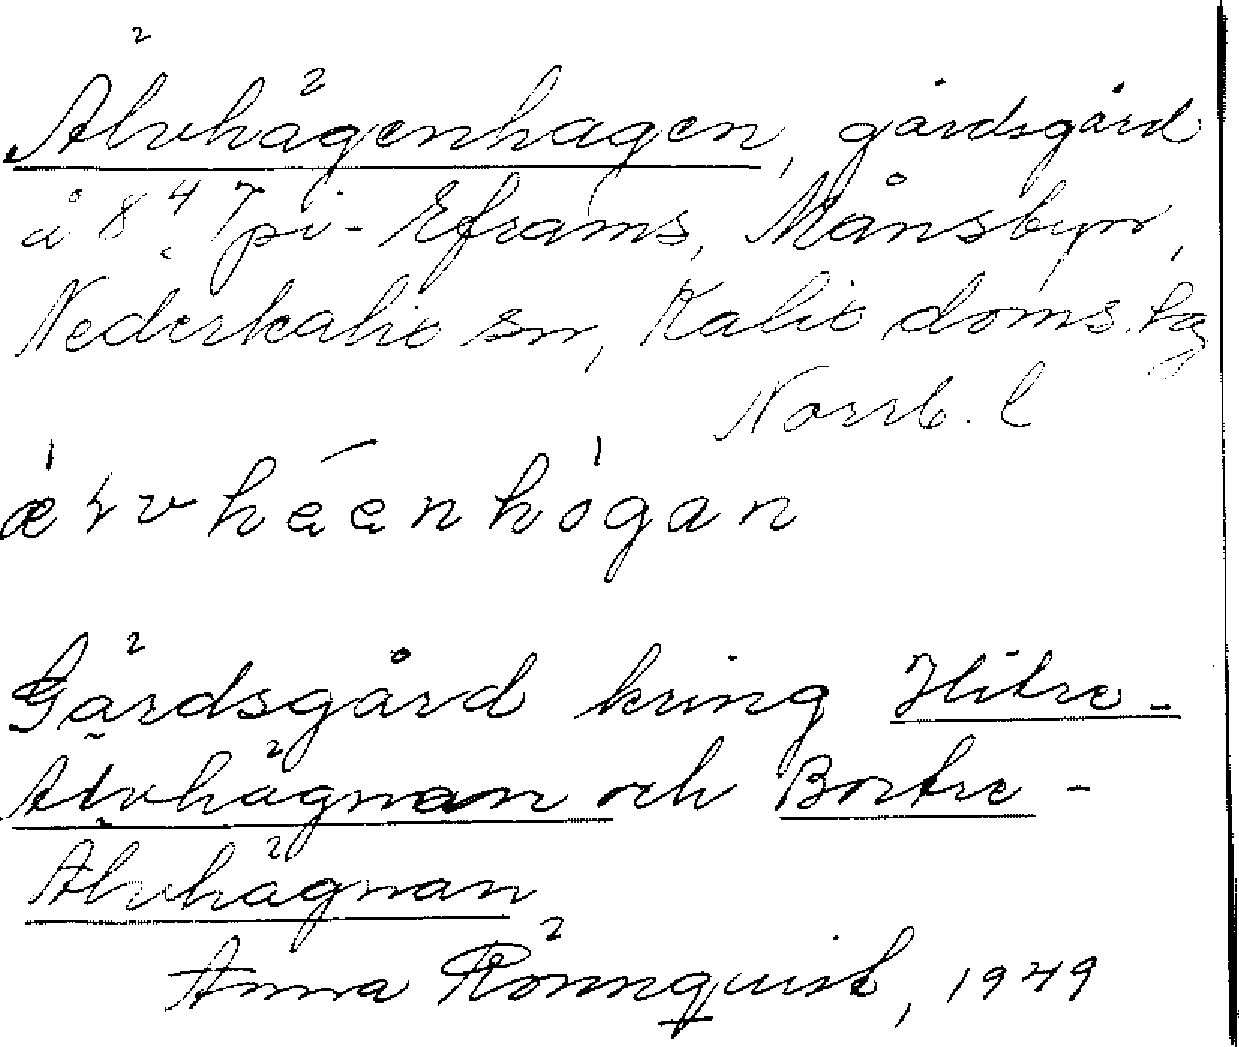 Älvhägenhagen, gårdsgård
å 8:4 Tpi-Eframs, Månsbyn,
Nederkalix sn, Kalix doms.lag
Norrb. l
Gärdsgård kring Hitre-
Älvhägnan och Bortre-
Älvhägnan
Anna Rönnquist, 1949